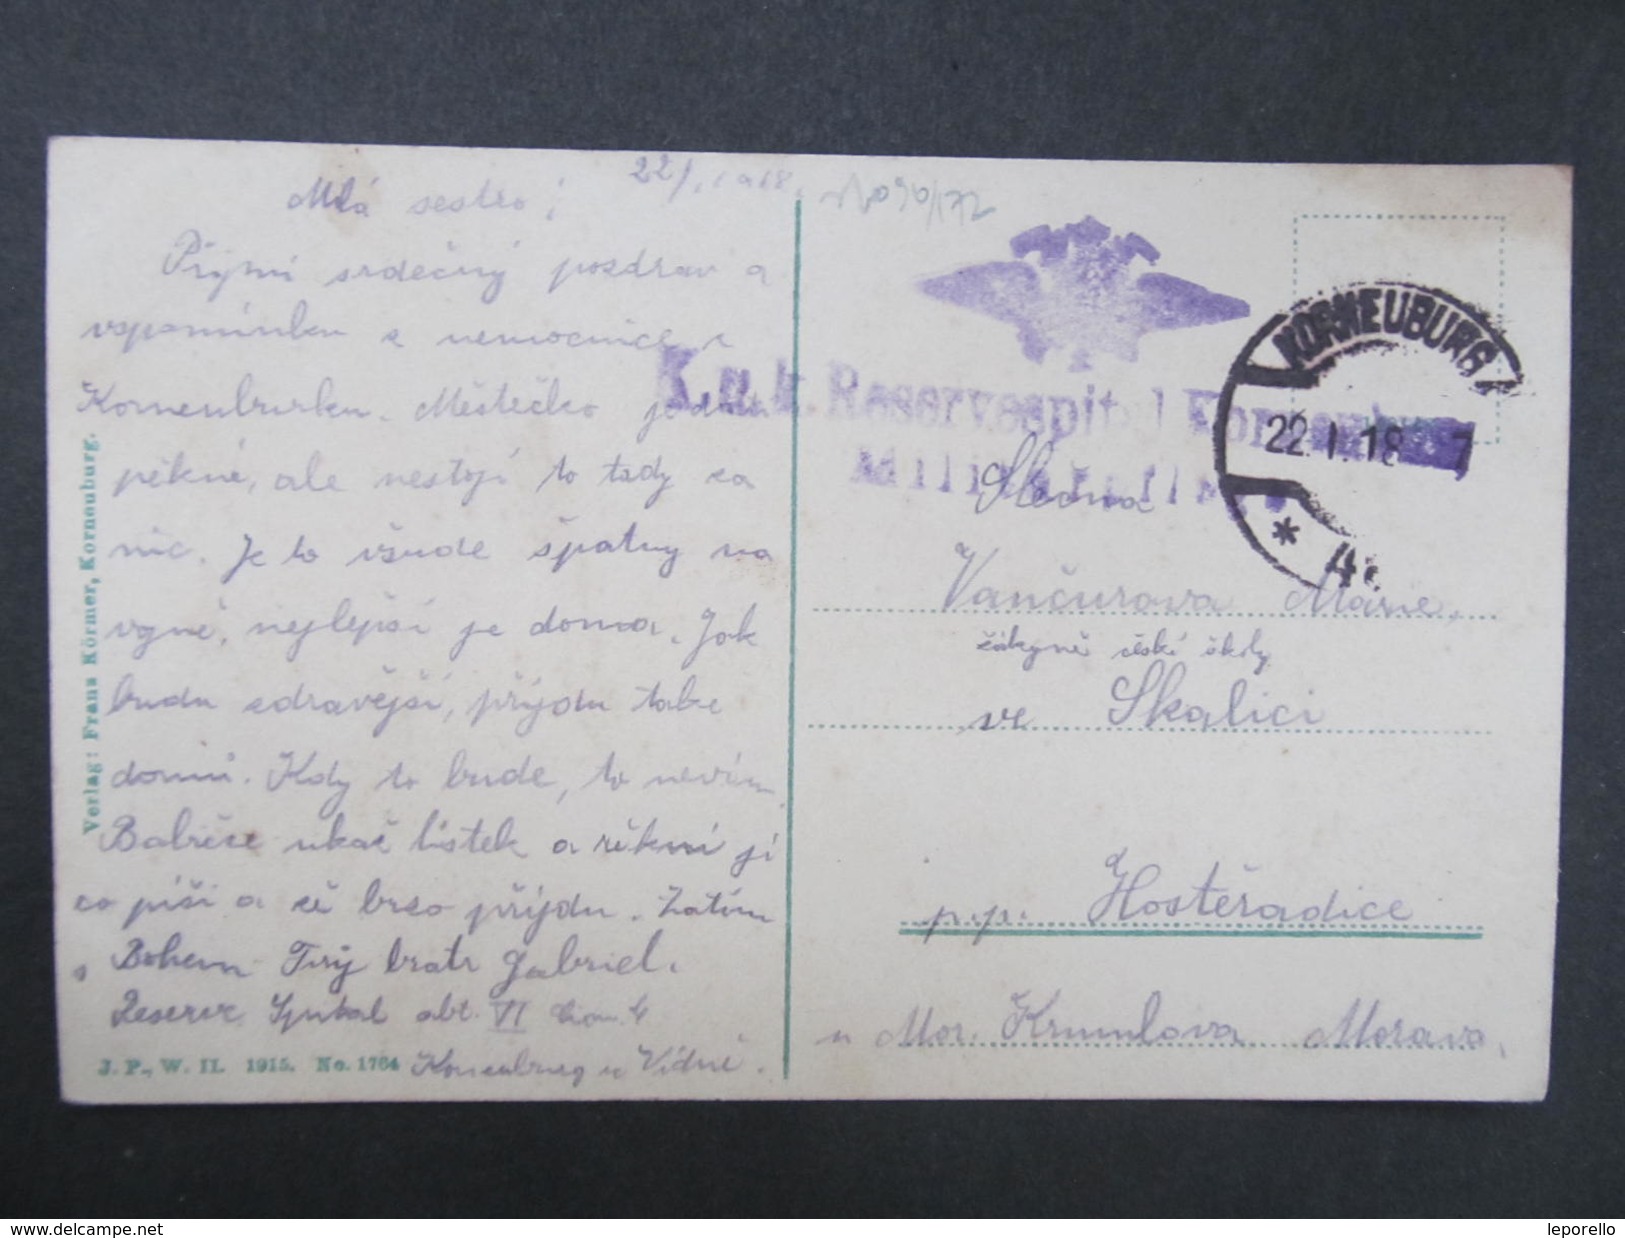 22/I. 1918.
Milá sestro!
Přijmi srdečný pozdrav a
vzpomínku z nemocnice v
Korneuburku. Městečko je
pěkné, ale nestojí to tady za
nic. Je to všude špatny na
vojně, nejlepší je doma. Jak
budu zdravější, přijdu take
domů. Kdy to bude, to nevím.
Babičce ukaž lístek a řekni jí
co píši a že brzo přijdu. Zatím
s Bohem Tvý bratr Gabriel.
Reserve Spital abt. VI
Korneuburg u Vídně.
J. P., W. II. 1915. No. 1764
Verlag: Franz Körner, Korneuburg.
K.u.k. Reservespital Korneuburg
KORNEUBURG
22.I.18 7
* 4
Slečna
Vančurova Marie,
žákyně české školy
ve Skalici
p.p. Hostěradice
u Mor. Krumlova Morava,
www.delcampe.net
leporello